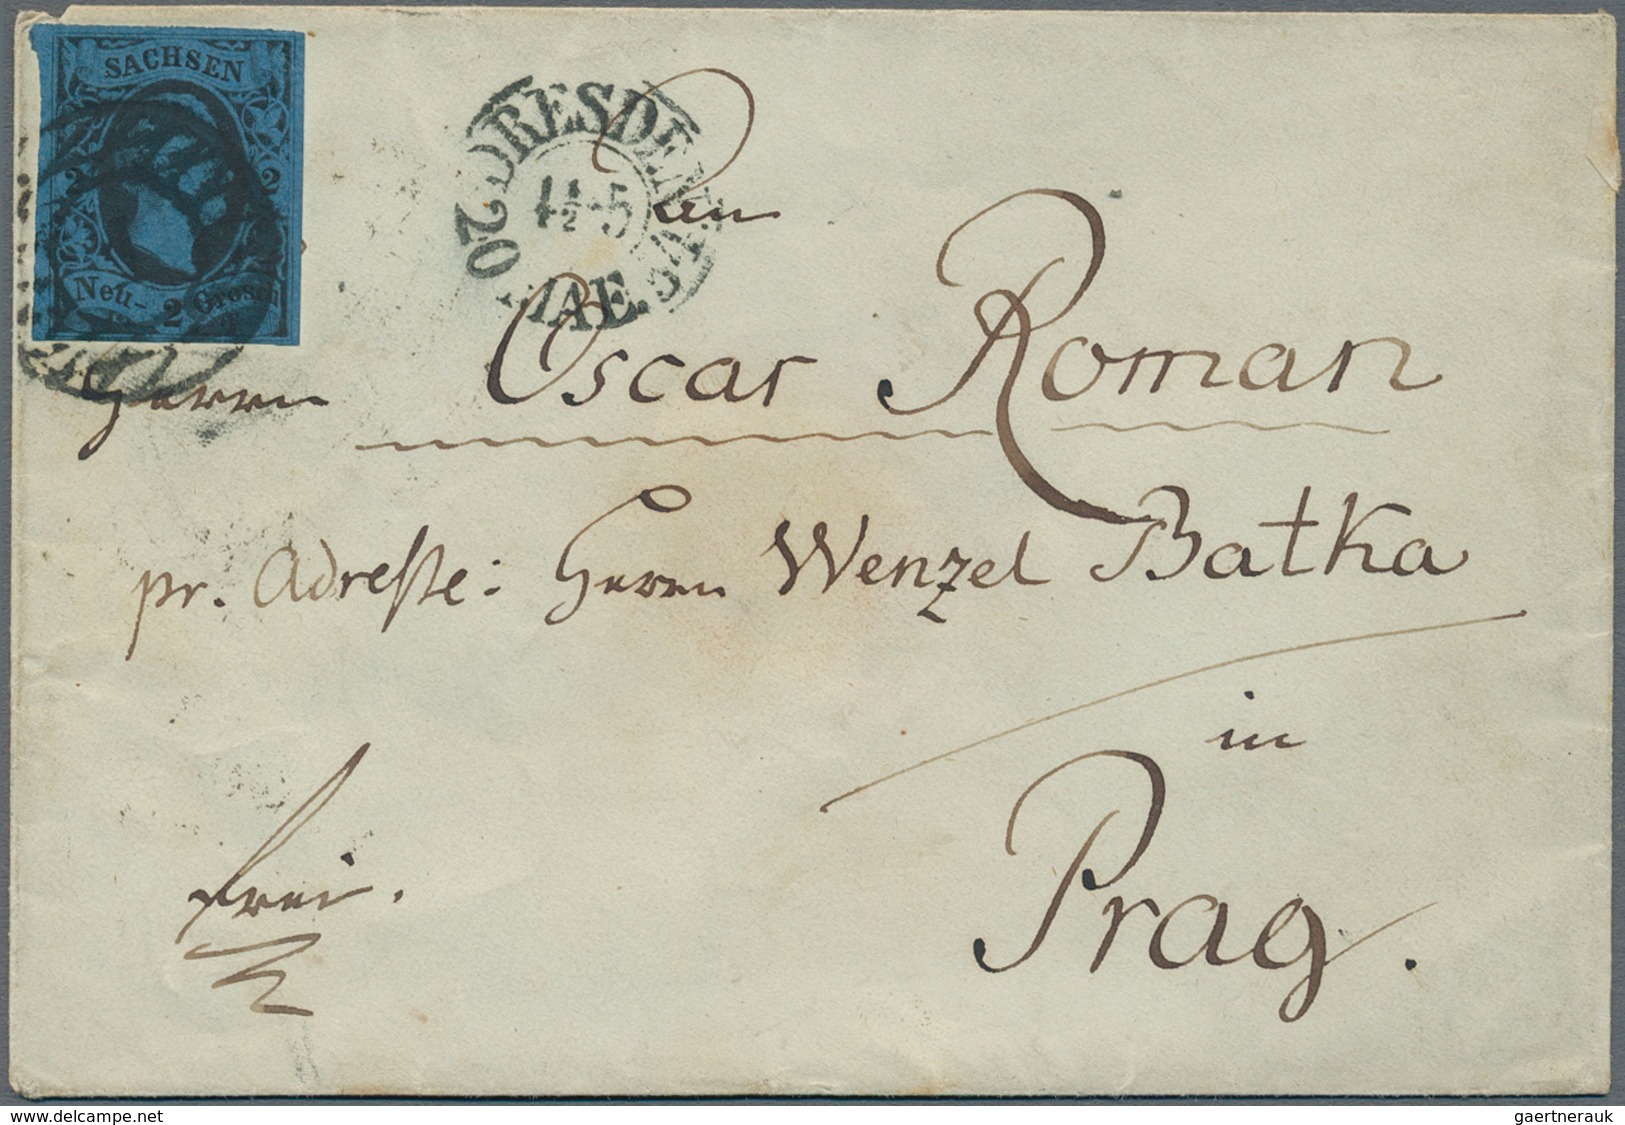 SACHSEN
2 2
Neu- 2 Grosch
DRESDEN
20 MAE.
Den
Herrn Oscar Roman
pr. Adresse: Herrn Wenzel Batka
in
Prag.
frei.
www.delcampe.net
gaertnerauk